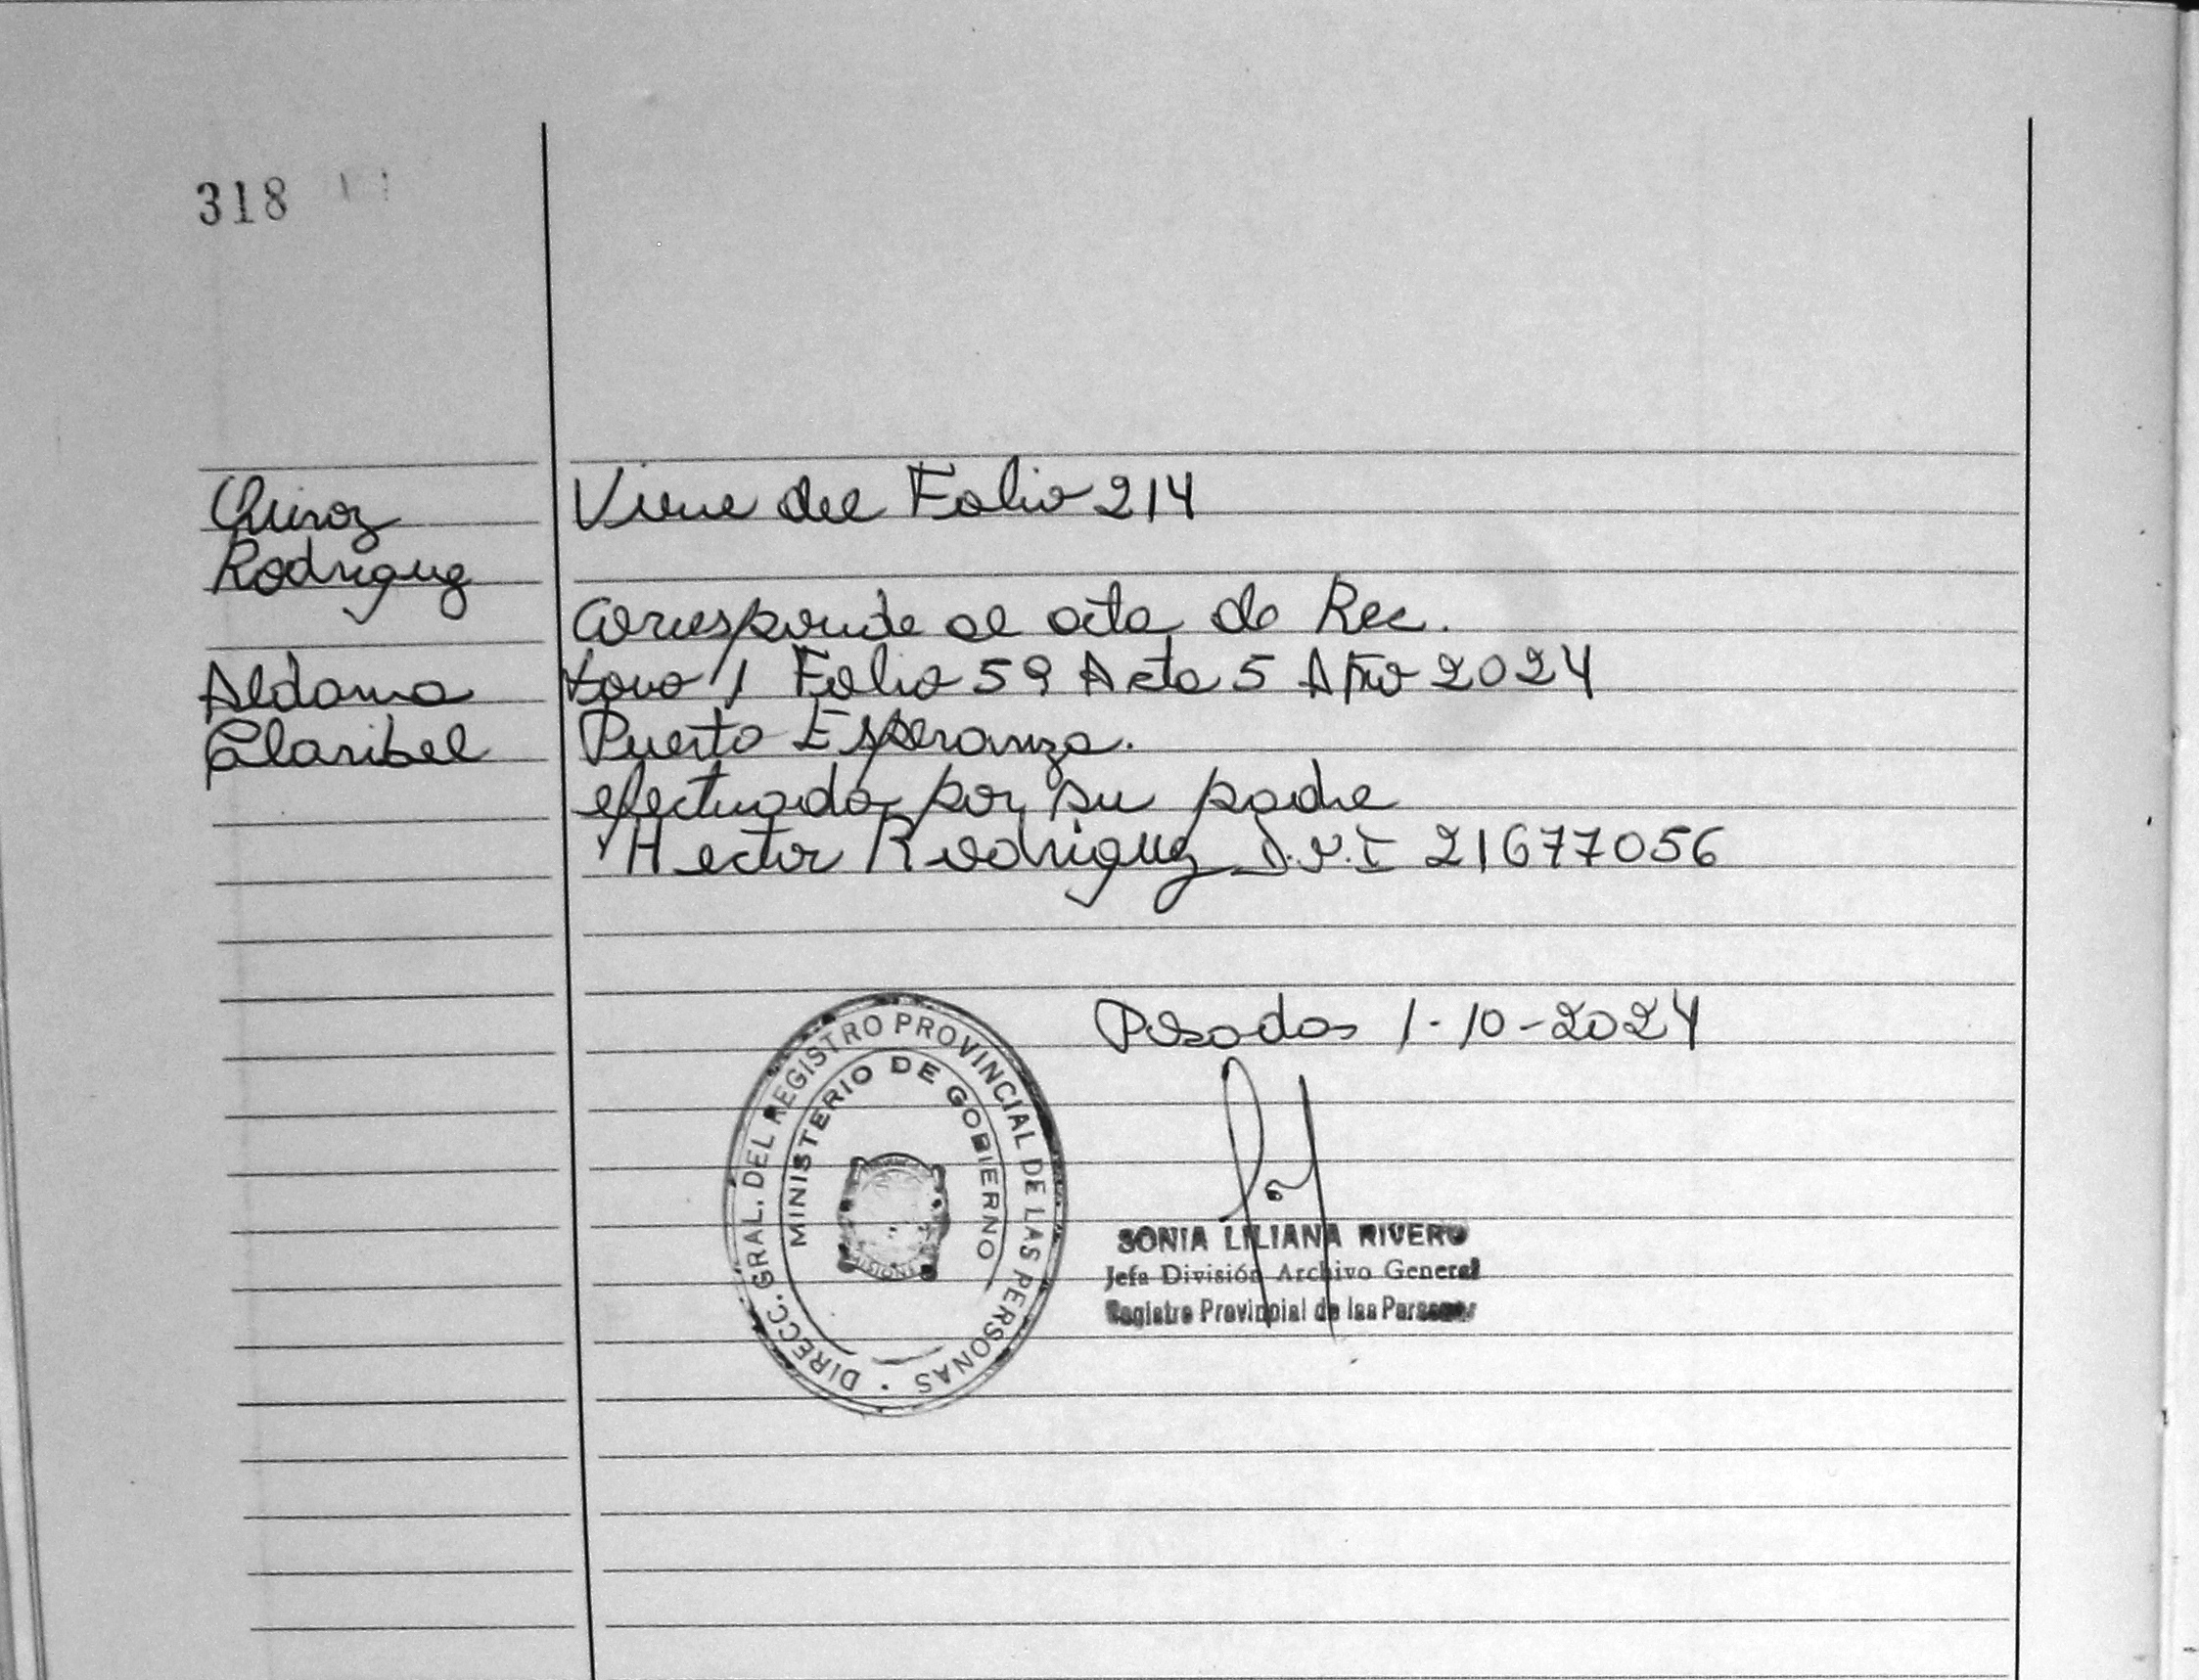 318
Quiroz
Rodriguez
Aldana
Claribel
Viene del Folio 214
Corresponde al acta de Rec.
tomo 1 Folio 59 Acta 5 Año 2024
Puerto Esperanza.
efectuado por su padre
Hector Rodriguez D.N.I 21677056
Posadas 1-10-2024
DIRECC. GRAL. DEL REGISTRO PROVINCIAL DE LAS PERSONAS
MINISTERIO DE GOBIERNO
SONIA LILIANA RIVERO
Jefa División Archivo General
Registro Provincial de las Personas